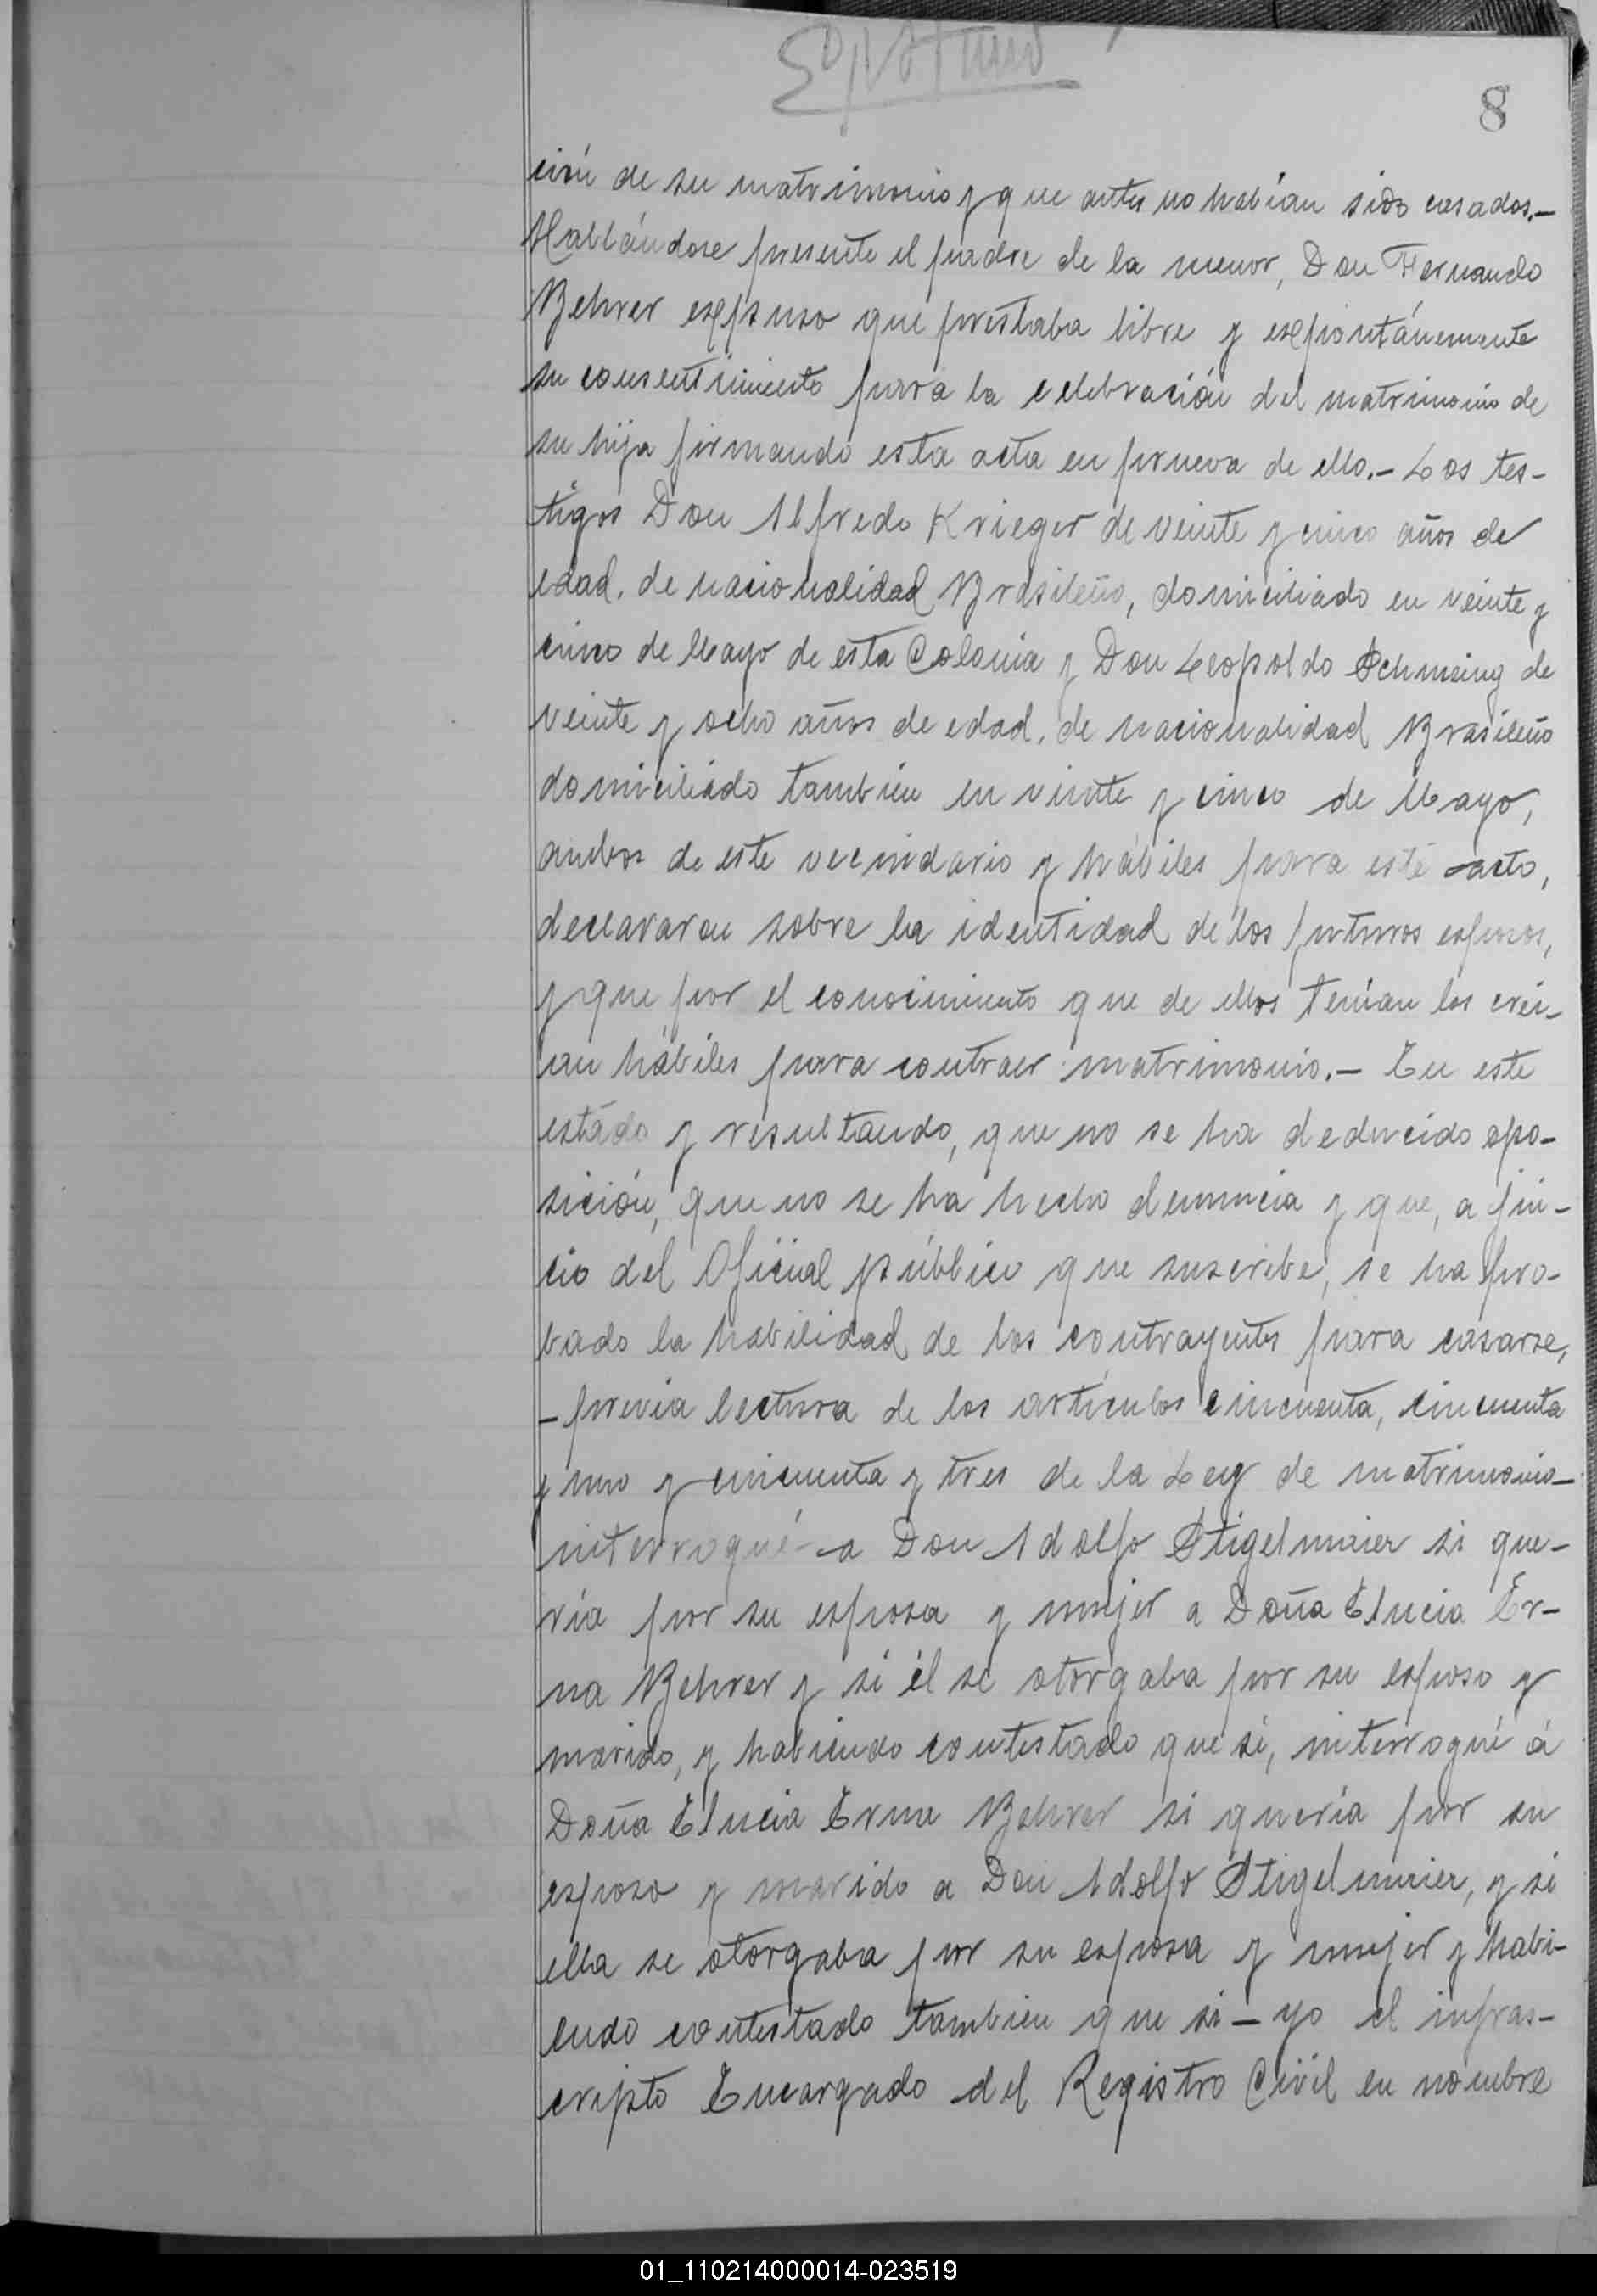 8
ción de su matrimonio y que antes no habían sido casados.-
Hallándose presente el padre de la menor, Don Fernando
Behrer expuso que prestaba libre y expontánemente
su consentimiento para la celebración del matrimonio de
su hija firmando esta acta en prueva de ello.- Los tes-
tigos Don Alfredo Krieger de veinte y cinco años de
edad, de nacionalidad Brasileño, domiciliado en veinte y
cinco de Mayo de esta Colonia y Don Leopoldo Schmeing de
veinte y ocho años de edad, de nacionalidad Brasileño
domiciliado tambien en veinte y cinco de Mayo,
ambos de este vecindario y hábiles para este acto,
declararon sobre la identidad de los futuros esposos,
y que por el conocimiento que de ellos tenían los creí-
an hábiles para contraer matrimonio.- En este
estado y resultando, que no se ha deducido opo-
sición, que no se ha hecho denuncia y que, a jui-
cio del Oficial público que suscribe, se ha pro-
bado la habilidad de los contrayentes para casarse,
- previa lectura de los artículos cincuenta, cincuenta
y uno y cincuenta y tres de la Ley de matrimonio-
interrogué a Don Adolfo Stigelmaier si que-
ría por su esposa y mujer a Doña Elucia Er-
na Behrer y si él se otorgaba por su esposo y
marido, y habiendo contestado que sí, interrogué á
Doña Elucia Erna Behrer si quería por su
esposo y marido a Don Adolfo Stigelmaier, y si
ella se otorgaba por su esposa y mujer y habi-
endo contestado tambien que si - yo el infras-
cripto Encargado del Registro Civil en nombre
01_110214000014-023519